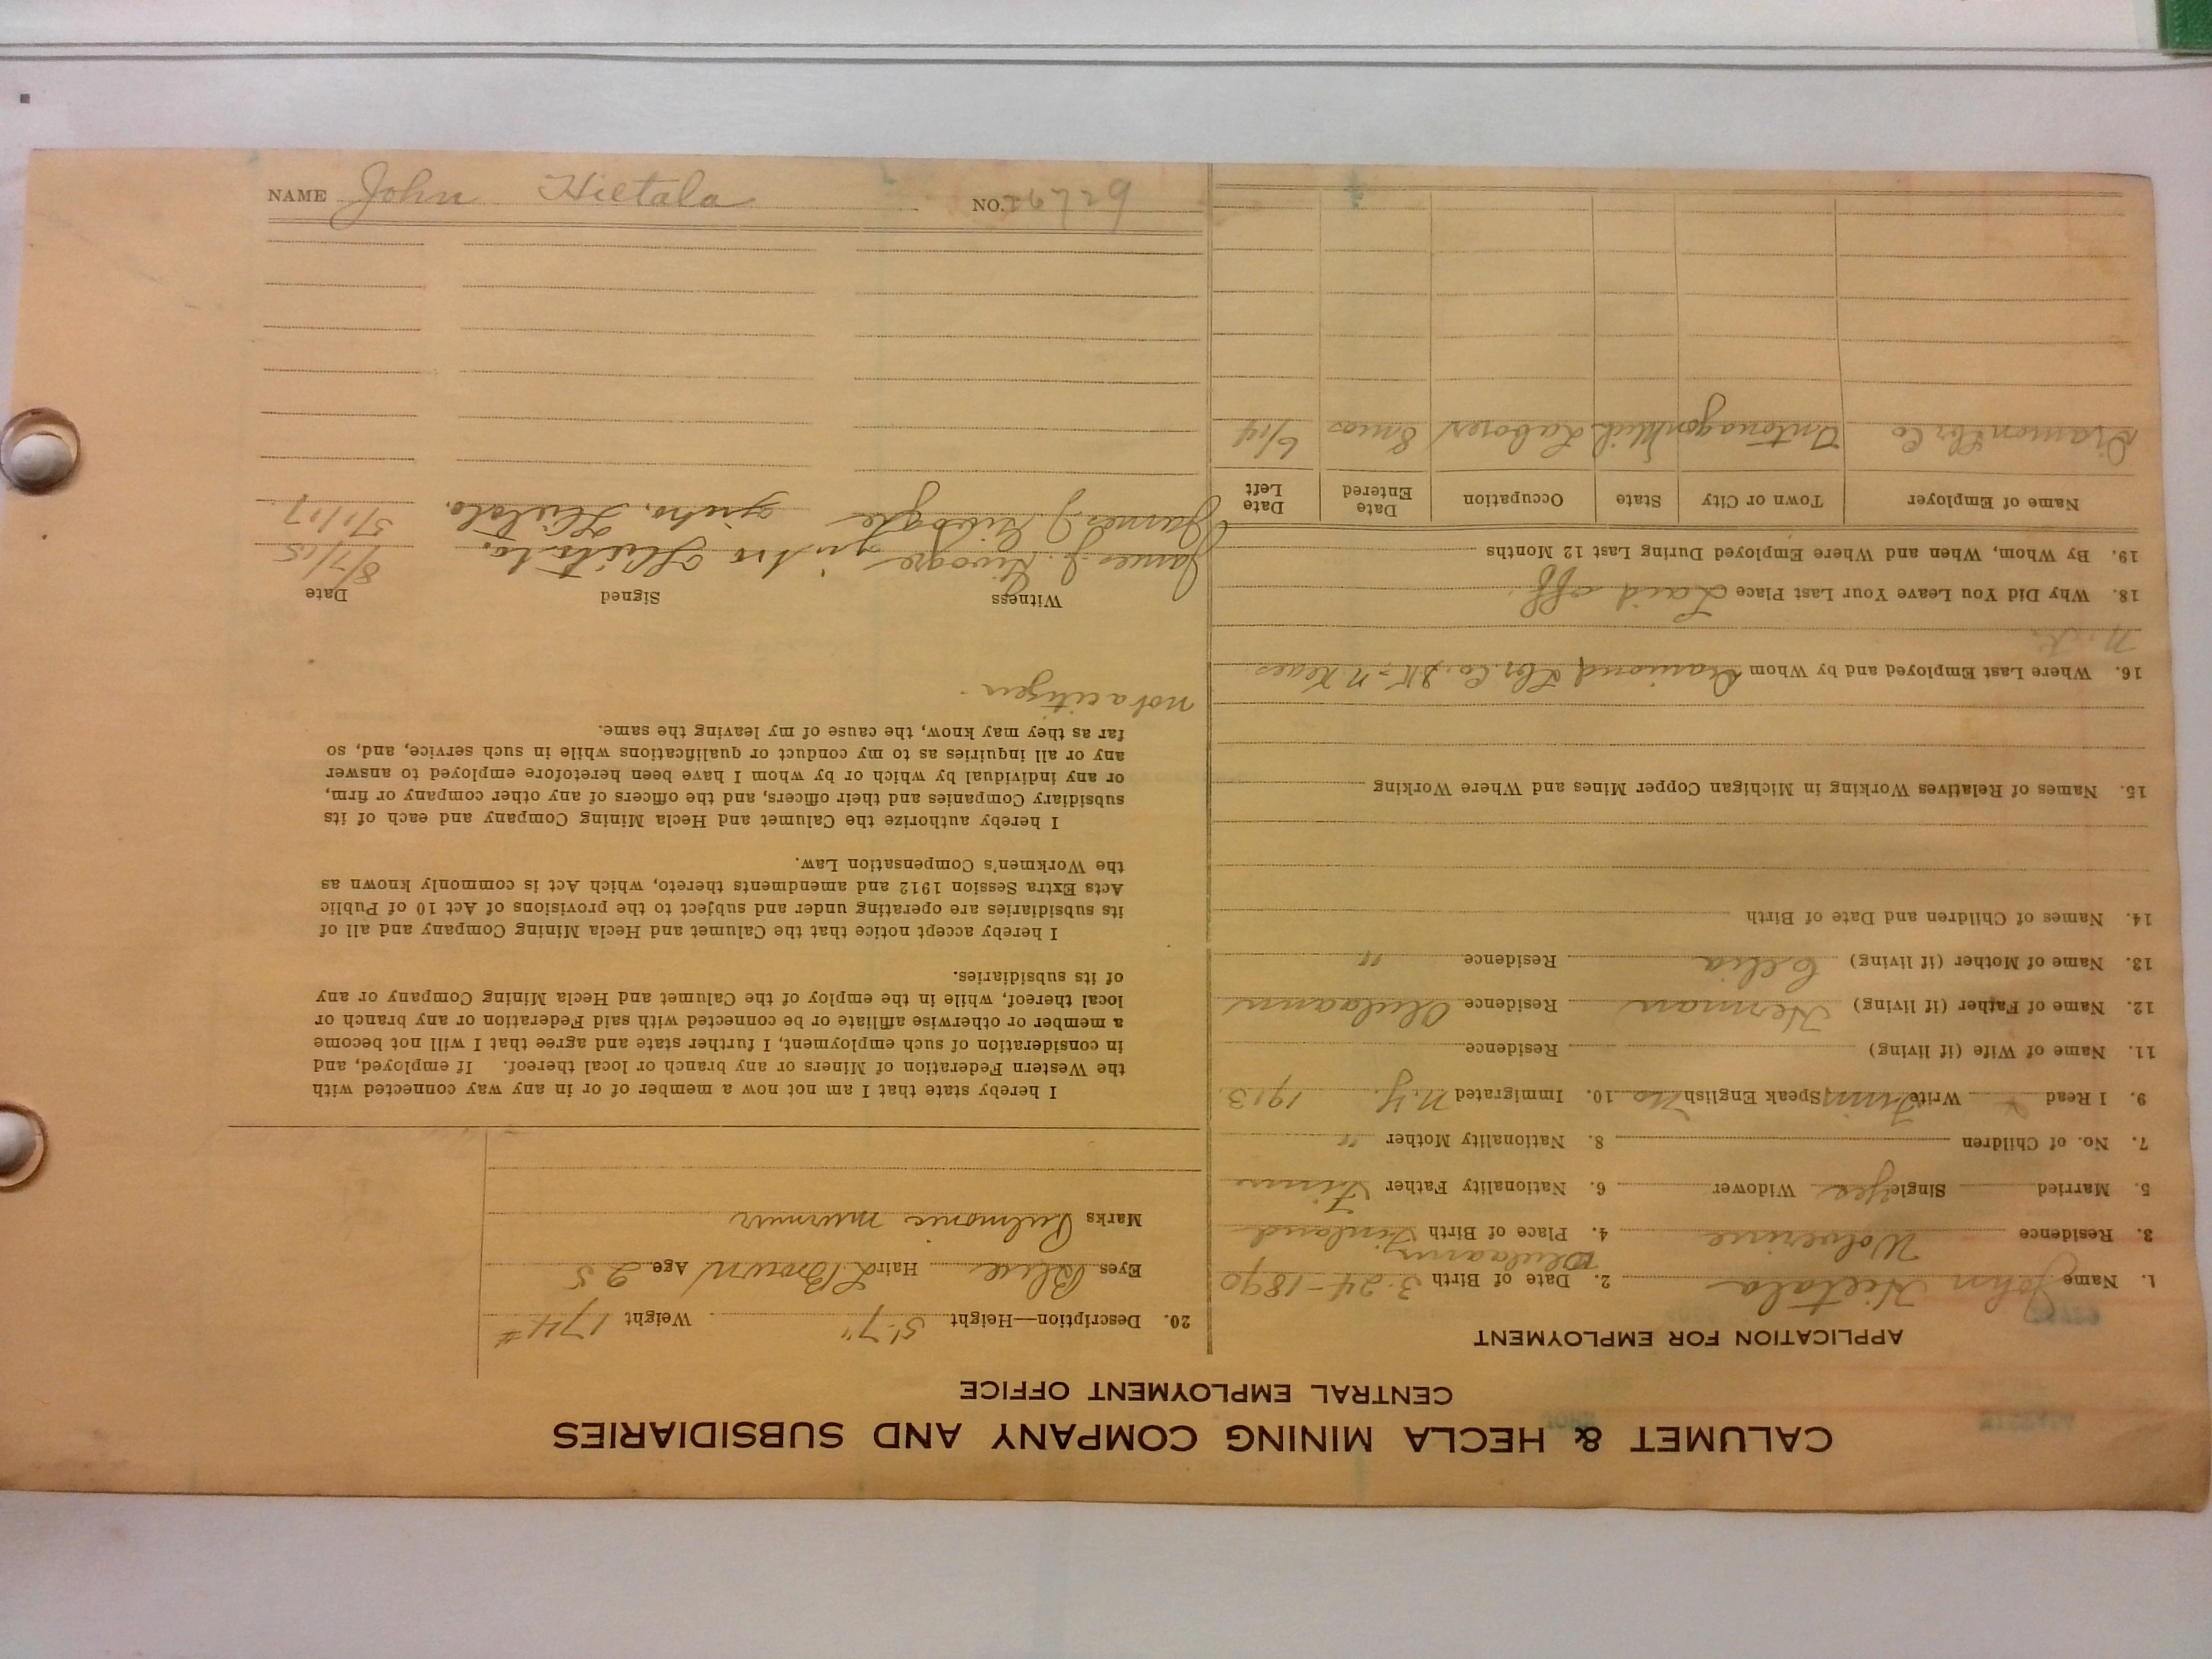 CALUMET & HECLA MINING COMPANY AND SUBSIDIARIES
CENTRAL EMPLOYMENT OFFICE
APPLICATION FOR EMPLOYMENT
1. Name John Hietala 2. Date of Birth 3-24-1890
3. Residence Wolverine 4. Place of Birth Finland
5. Married Single yes Widower 6. Nationality Father Finn
7. No. of Children 8. Nationality Mother "
9. I Read Write Finn Speak English no 10. Immigrated N.Y. 1913
11. Name of Wife (if living) Residence
12. Name of Father (if living) Herman Residence
13. Name of Mother (if living) Residence "
14. Names of Children and Date of Birth
15. Names of Relatives Working in Michigan Copper Mines and Where Working
16. Where Last Employed and by Whom Diamond Lbr. Co.
18. Why Did You Leave Your Last Place Laid off
19. By Whom, When and Where Employed During Last 12 Months
Name of Employer Town or City State Occupation Date Entered Date Left
Diamon Lbr Co Ontonagon Mich Laborer 8 mos 6/14
20. Description—Height 5'-7" Weight 174#
Eyes Blue Hair L Brown Age 25
Marks Pulmonic murmur
I hereby state that I am not now a member of or in any way connected with
the Western Federation of Miners or any branch or local thereof. If employed, and
in consideration of such employment, I further state and agree that I will not become
a member or otherwise affiliate or be connected with said Federation or any branch or
local thereof, while in the employ of the Calumet and Hecla Mining Company or any
of its subsidiaries.
I hereby accept notice that the Calumet and Hecla Mining Company and all of
its subsidiaries are operating under and subject to the provisions of Act 10 of Public
Acts Extra Session 1912 and amendments thereto, which Act is commonly known as
the Workmen's Compensation Law.
I hereby authorize the Calumet and Hecla Mining Company and each of its
subsidiary Companies and their officers, and the officers of any other company or firm,
or any individual by which or by whom I have been heretofore employed to answer
any or all inquiries as to my conduct or qualifications while in such service, and, so
far as they may know, the cause of my leaving the same.
not a citizen.
Witness Signed Date
James J. Hietala. 8/7/15
James J. Hietala. 5/1/17
NAME John Hietala NO. 26729